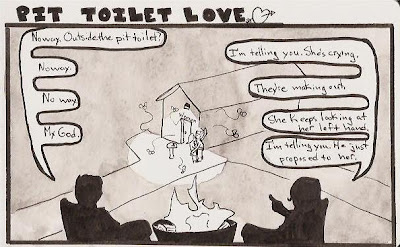 PIT TOILET LOVE
Noway. Outside the pit toilet?
Noway.
No way.
My God.
I'm telling you. She's crying.
They're making out.
She Keeps looking at
her left hand.
I'm telling you. He just
proposed to her.